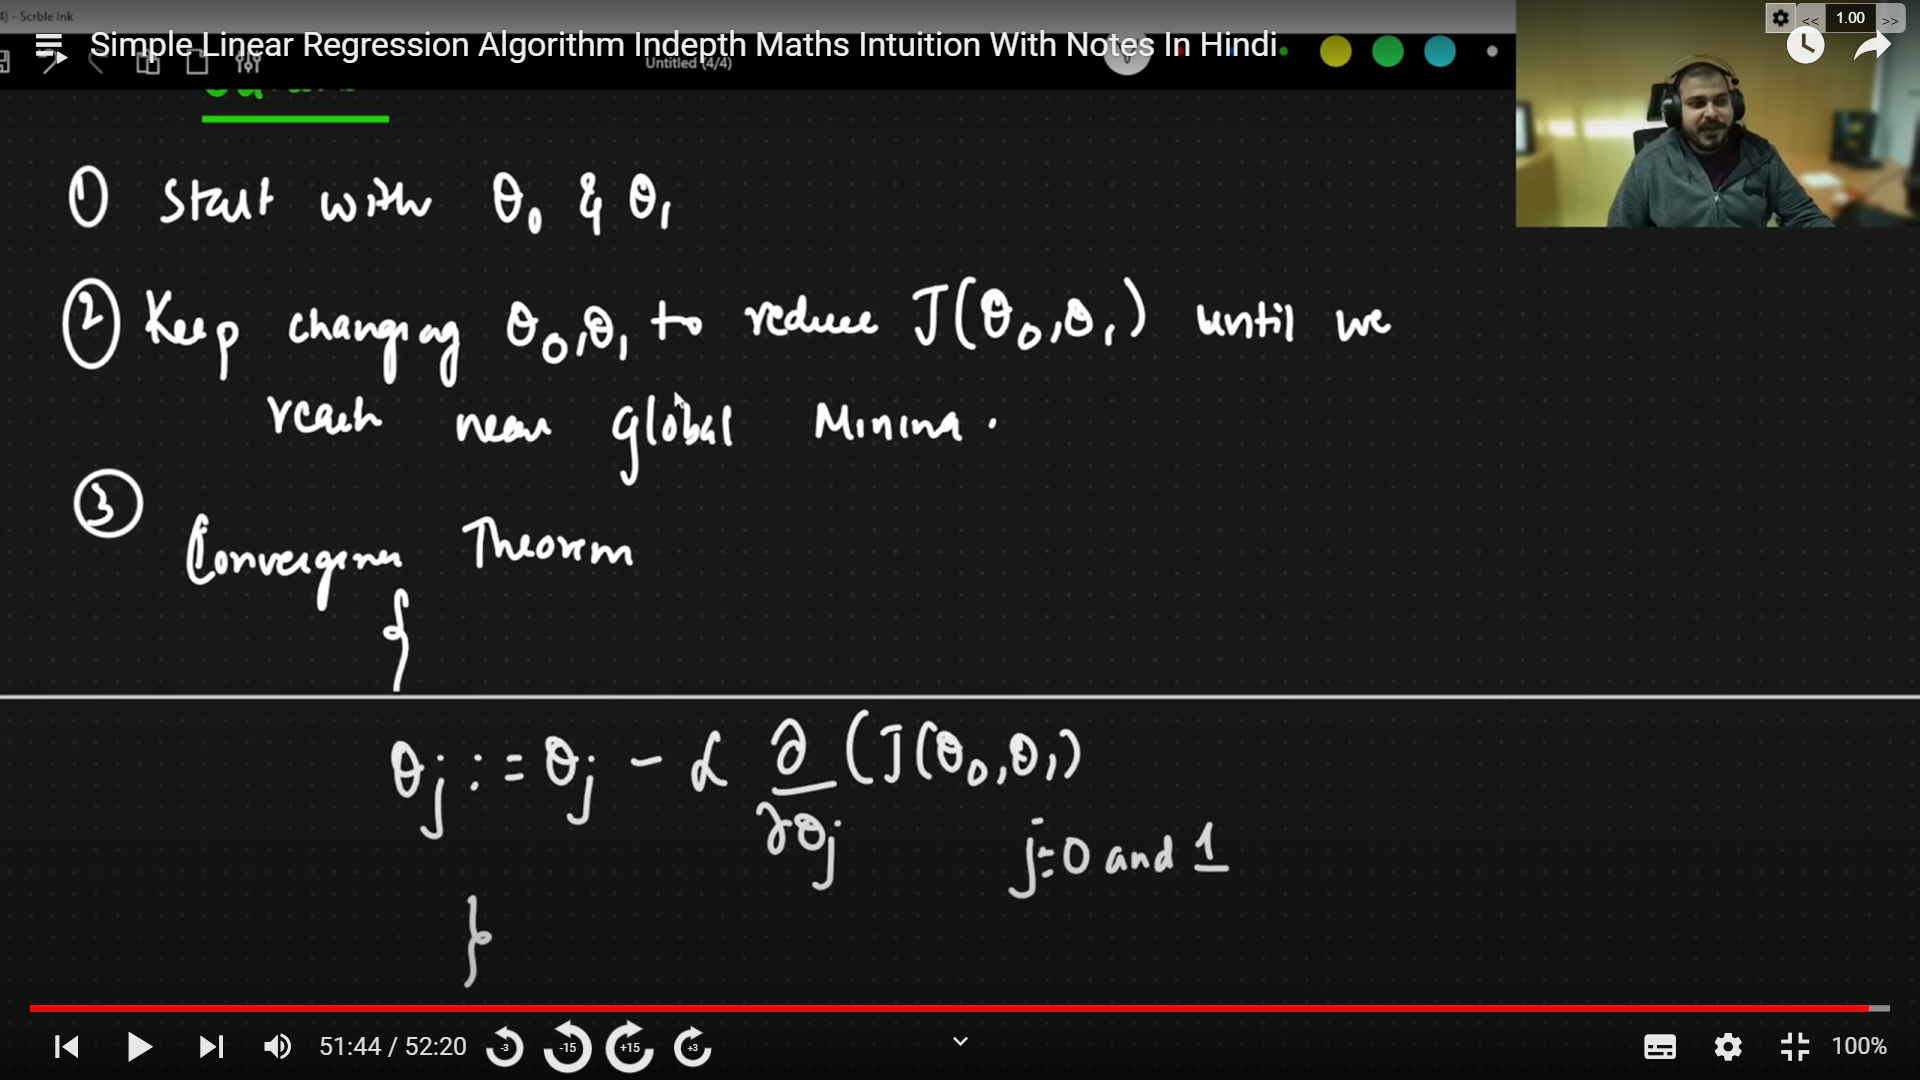 4) - Scrble Ink
<< 1.00 >>
Simple Linear Regression Algorithm Indepth Maths Intuition With Notes In Hindi
Untitled (4/4)
① Start with θ₀ & θ₁
② Keep changing θ₀,θ₁ to reduce J(θ₀,θ₁) until we
reach near global Minima.
③
Convergence Theorem
{
θj := θj - α ∂/∂θj (J(θ₀,θ₁)
j=0 and 1
}
51:44 / 52:20 -3 -15 +15 +3 100%